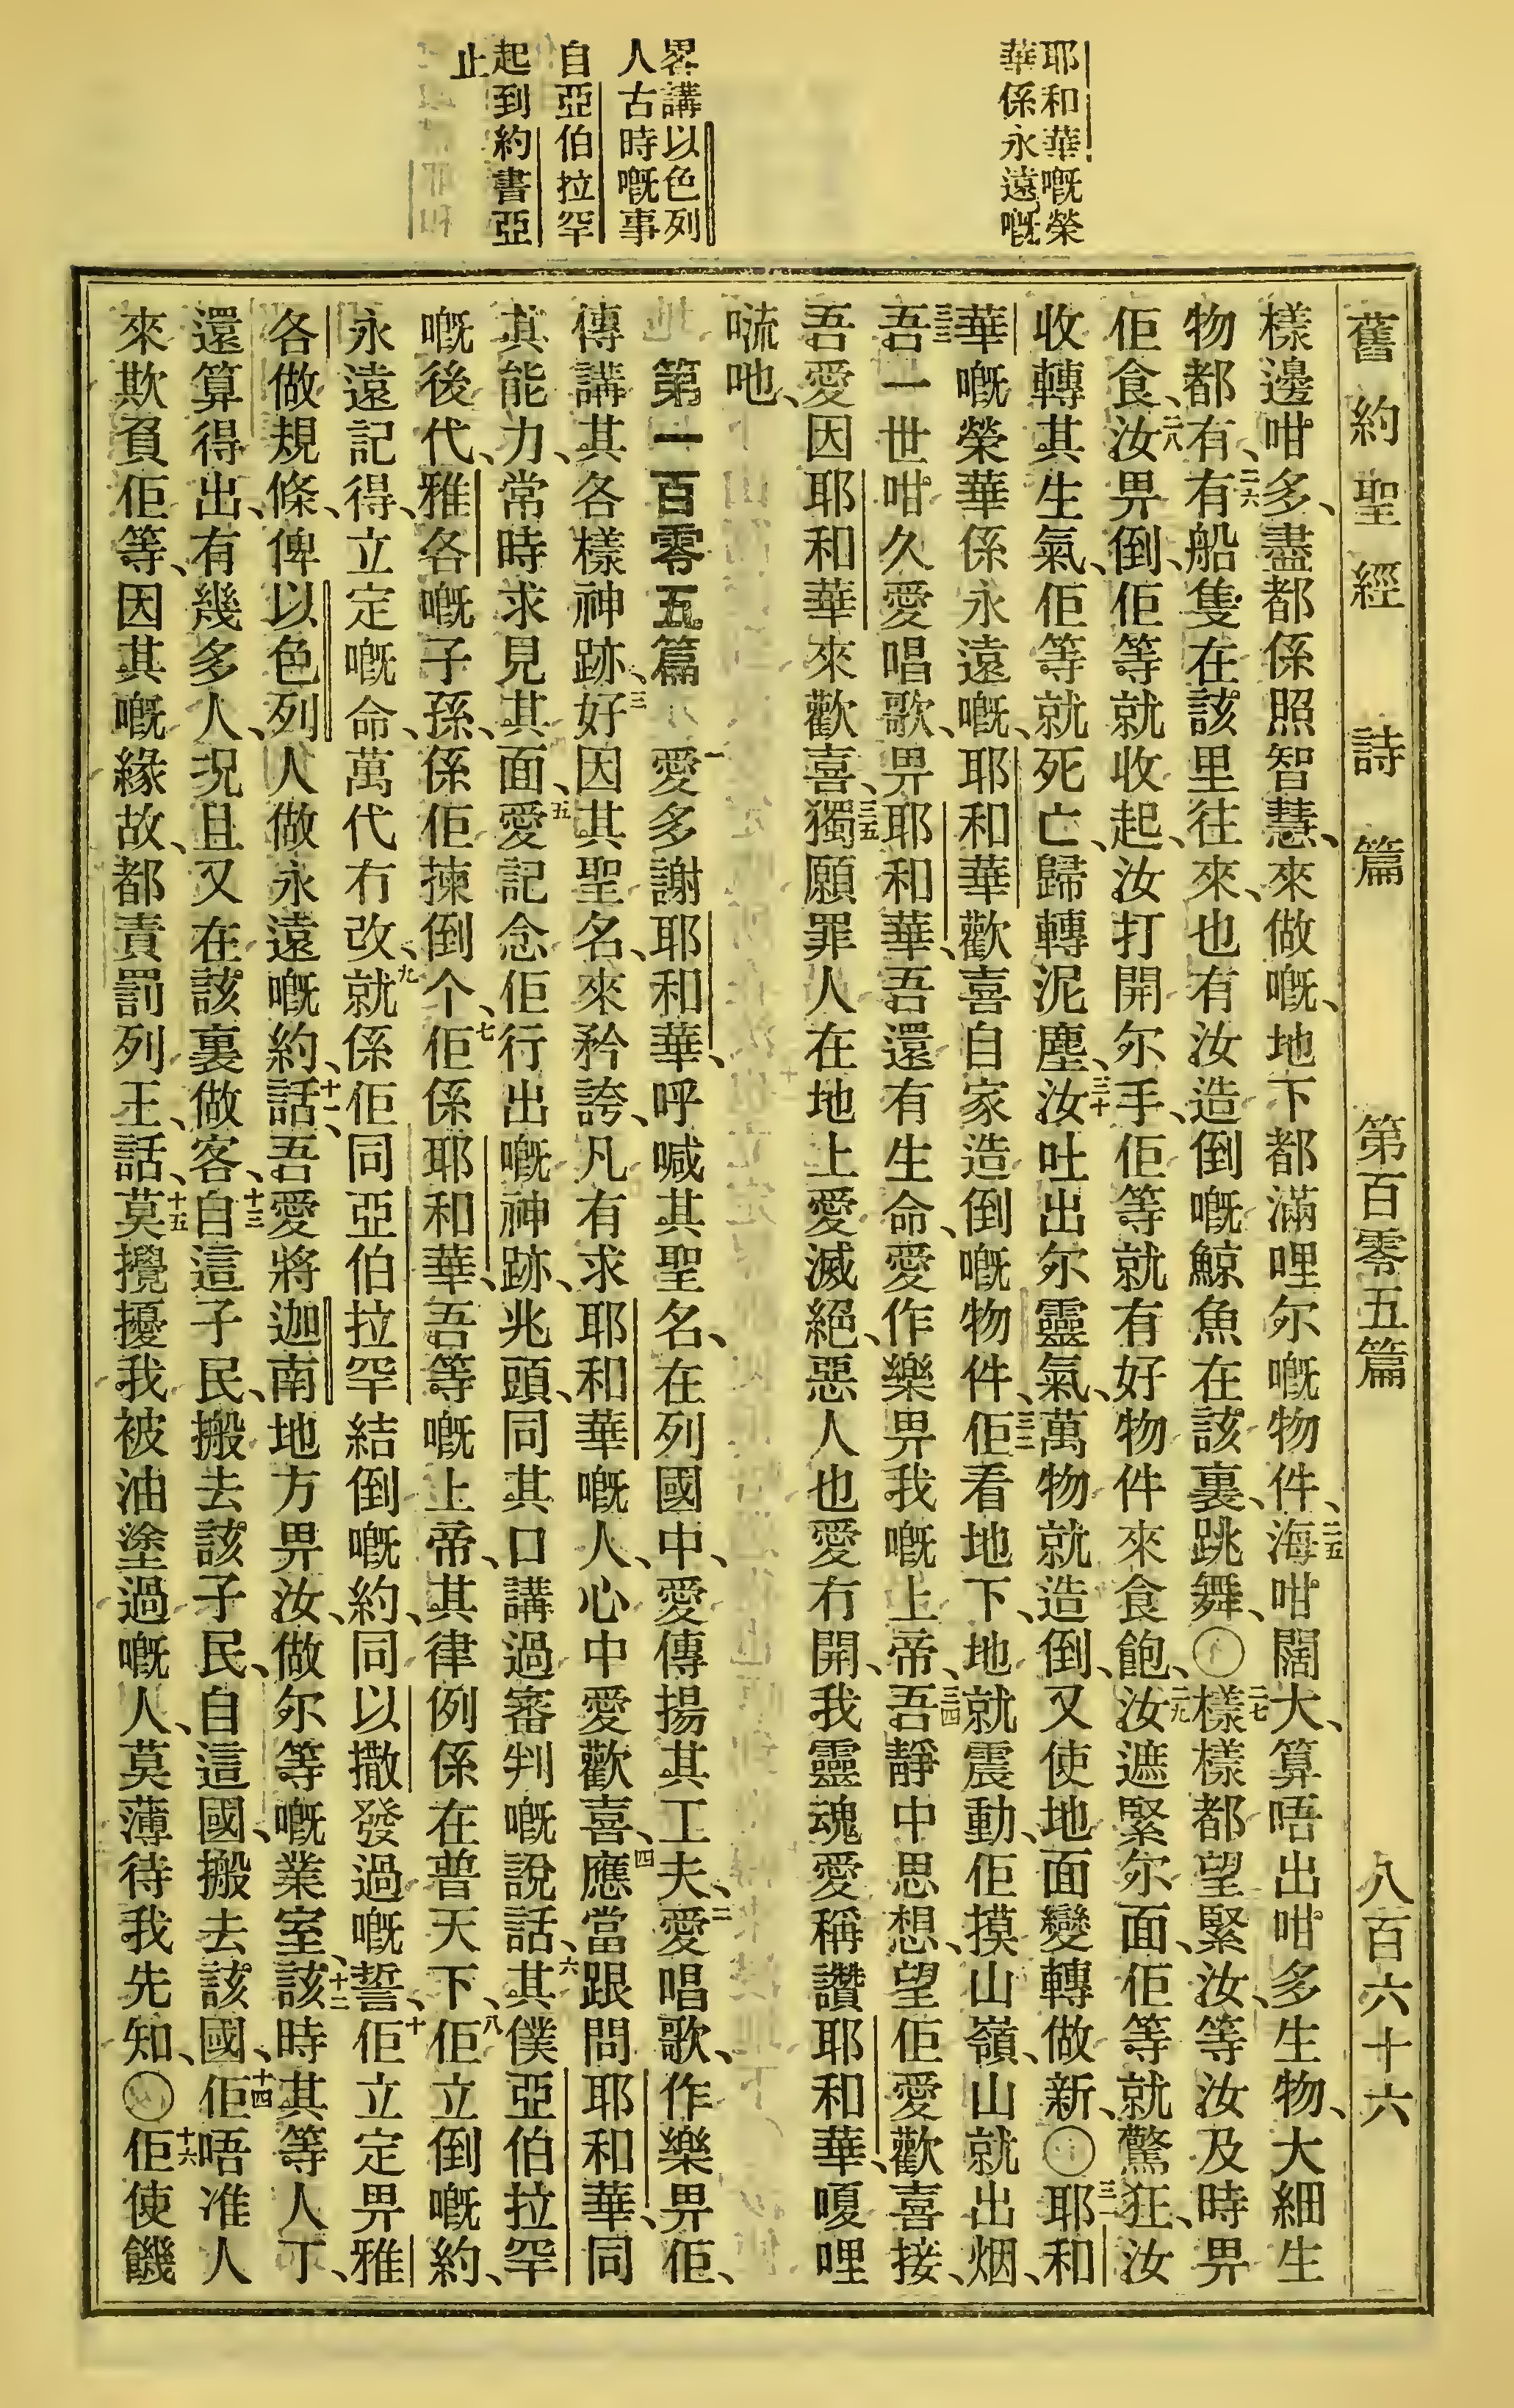 耶和華嘅榮
華係永遠嘅
畧講以色列
人古時嘅事
自亞伯拉罕
起到約書亞
止
舊約聖經 詩篇 第百零五篇 八百六十六
樣邊咁多、盡都係照智慧、來做嘅、地下都滿哩尔嘅物件、二五海咁闊大、算唔出咁多生物、大細生
物都有、二六有船隻在該里往來、也有汝造倒嘅鯨魚在該裏、跳舞、〇二七樣樣都望緊汝、等汝及時畀
佢食、二八汝畀倒、佢等就收起、汝打開尔手、佢等就有好物件來食飽、二九汝遮緊尔面、佢等就驚狂、汝
收轉其生氣、佢等就死亡、歸轉泥塵、三十汝吐出尔靈氣、萬物就造倒、又使地面變轉做新、〇三一耶和
華嘅榮華係永遠嘅、耶和華歡喜自家造倒嘅物件、三二佢看地下、地就震動、佢摸山嶺、山就出烟、
三三吾一世咁久愛唱歌、畀耶和華、吾還有生命、愛作樂畀我嘅上帝、三四吾靜中思想、望佢愛歡喜接、
吾愛因耶和華來歡喜、三五獨願罪人在地上愛滅絕、惡人也愛冇開、我靈魂愛稱讚耶和華、嗄哩
㗭吔、
第一百零五篇 一愛多謝耶和華、呼喊其聖名、在列國中、愛傳揚其工夫、二愛唱歌、作樂畀佢、
傳講其各樣神跡、三好因其聖名、來矜誇、凡有求耶和華嘅人、心中愛歡喜、四應當跟問耶和華、同
其能力、常時求見其面、五愛記念佢行出嘅神跡、兆頭、同其口講過審判嘅說話、六其僕亞伯拉罕
嘅後代、雅各嘅子孫、係佢揀倒个、七佢係耶和華、吾等嘅上帝、其律例係在普天下、八佢立倒嘅約、
永遠記得、立定嘅命、萬代冇改、九就係佢同亞伯拉罕結倒嘅約、同以撒發過嘅誓、十佢立定畀雅
各做規條、俾以色列人做永遠嘅約、十一話、吾愛將迦南地方畀汝、做尔等嘅業室、十二該時其等人丁、
還算得出、有幾多人、况且又在該裏做客、十三自這子民、搬去該子民、自這國、搬去該國、十四佢唔准人
來欺負佢等、因其嘅緣故、都責罰列王、話、十五莫攪擾我被油塗過嘅人、莫薄待我先知、〇十六佢使饑